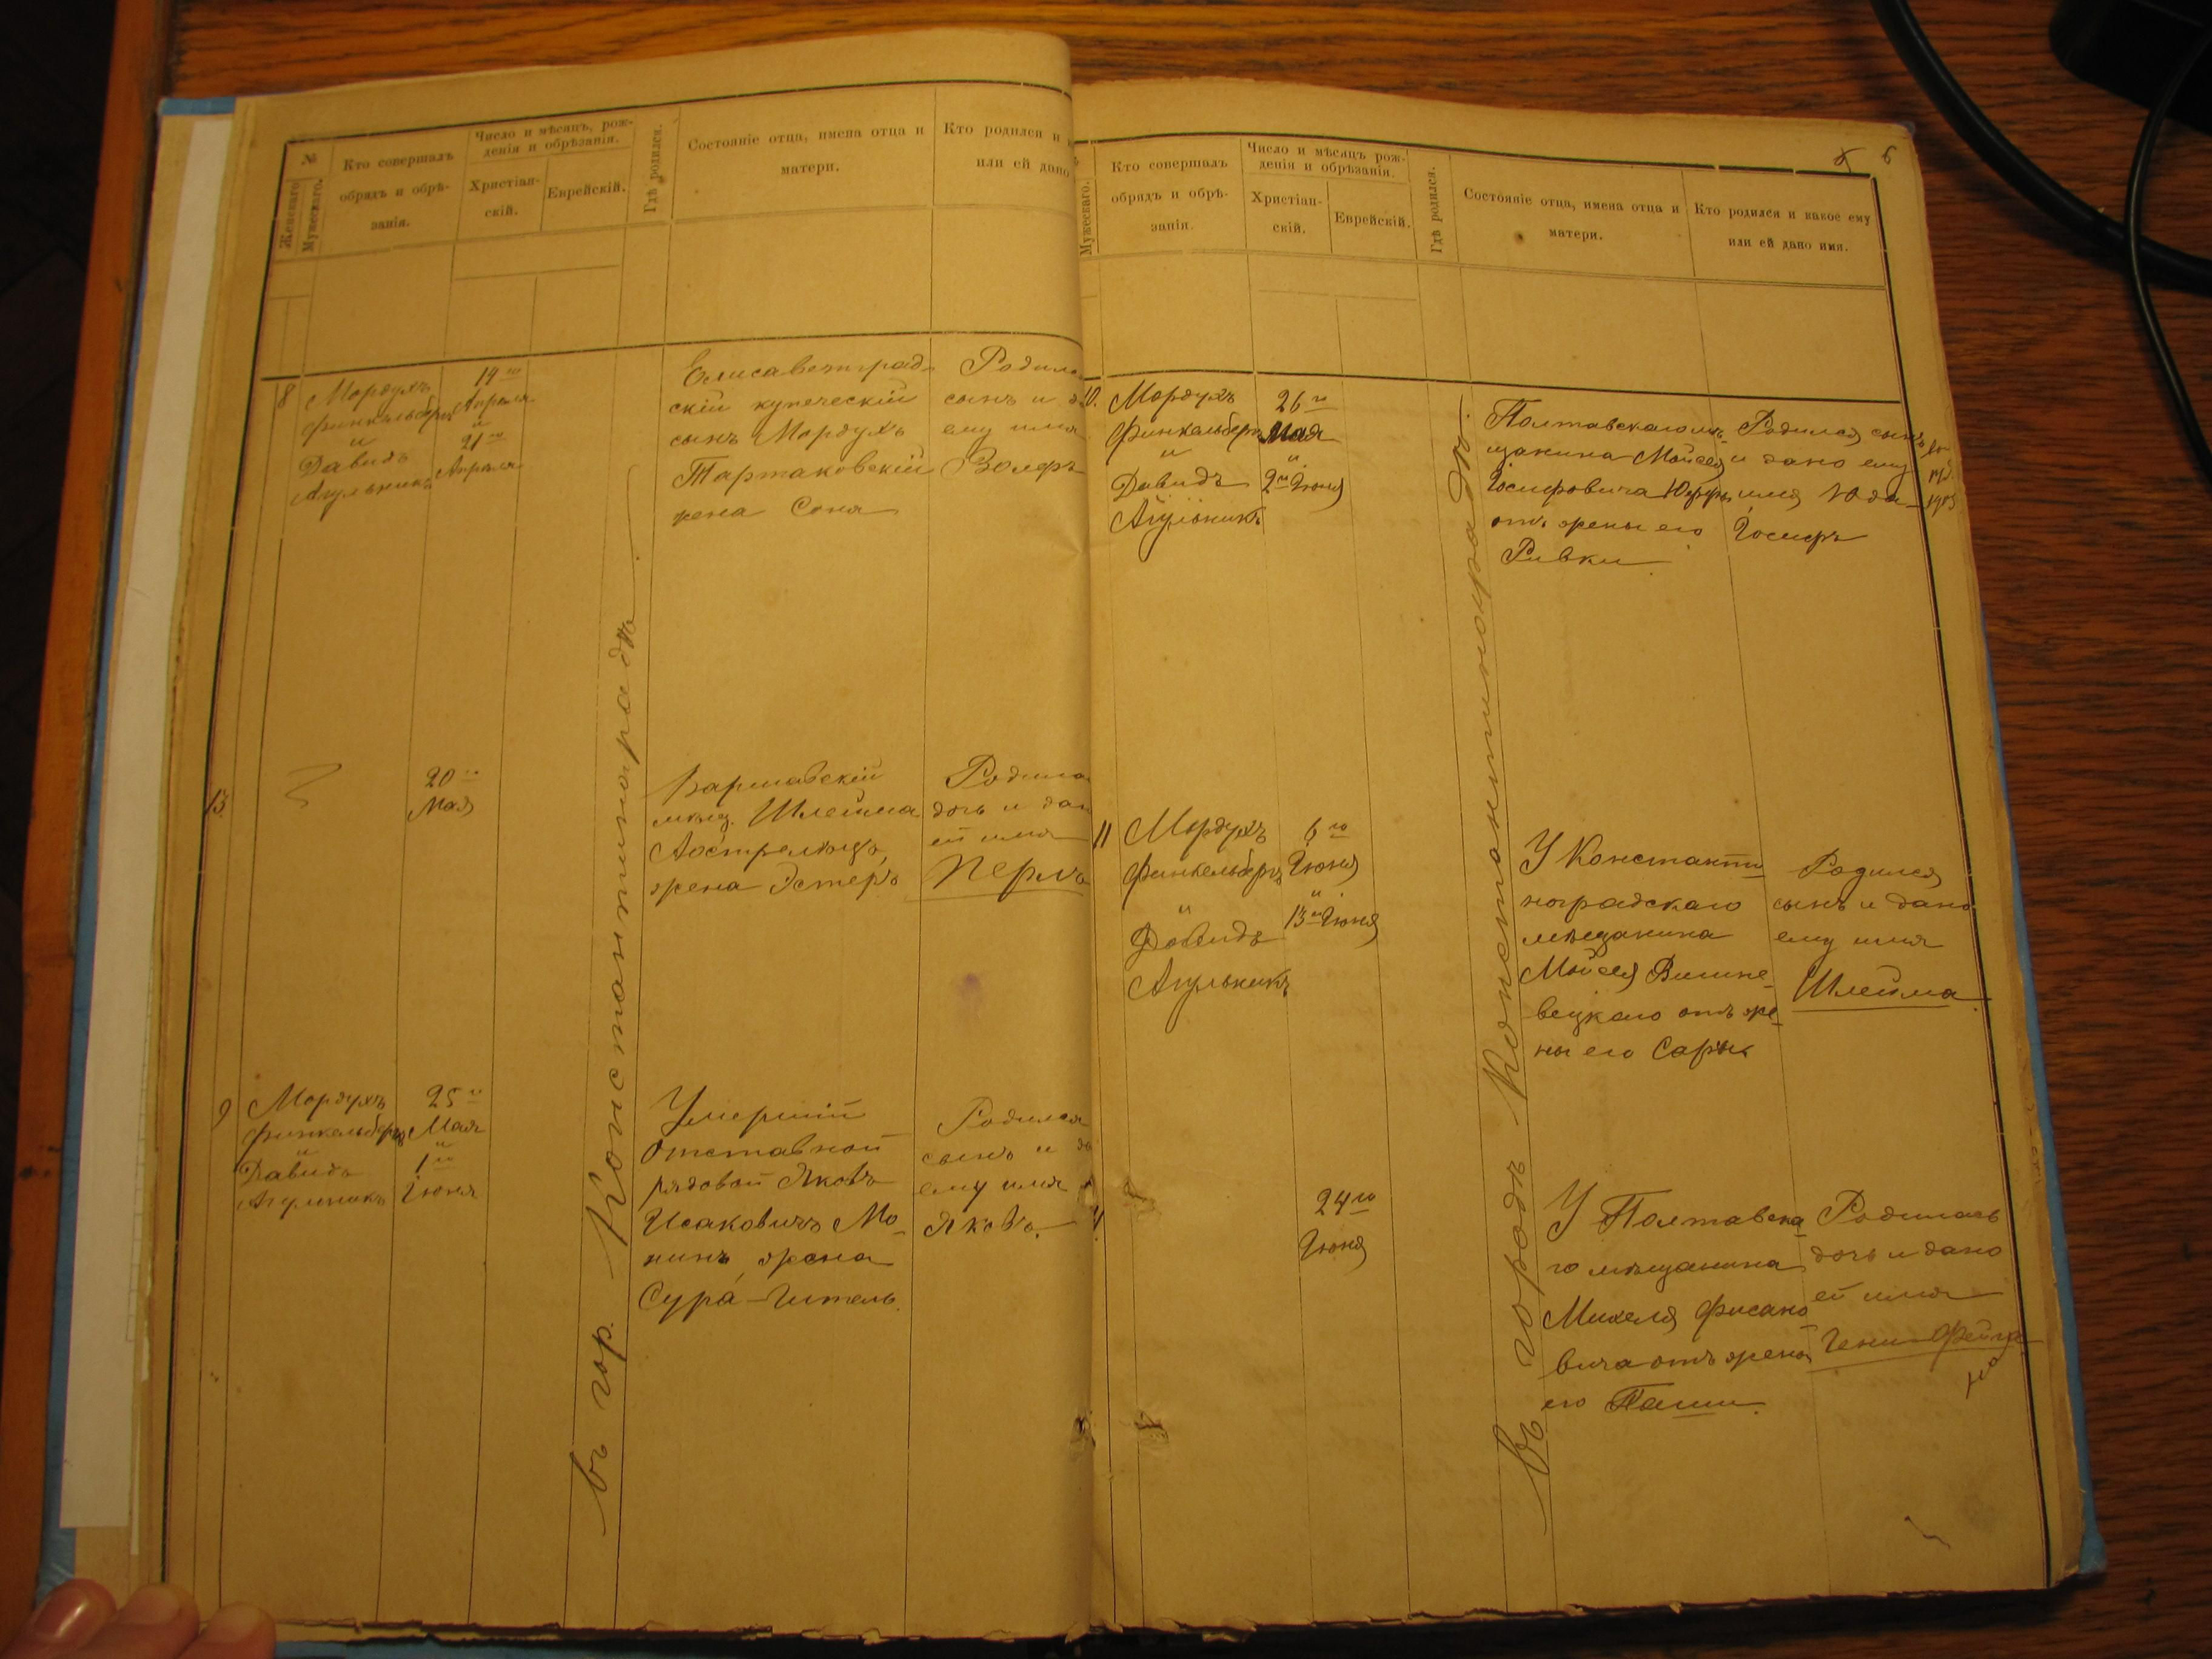 №
Женскаго.
Мужескаго.
Кто совершалъ
обрядъ и обрѣ-
занія.
Число и мѣсяцъ, рож-
денія и обрѣзанія.
Христіан-
скій.
Еврейскій.
Гдѣ родился.
Состояніе отца, имена отца и
матери.
Кто родился и
или ей дано
8
Мордухъ
Финкельбергъ
и
Давидъ
Агульникъ
14го
Апреля
и
21го
Апреля
Елисаветград-
скій купеческій
сынъ Мордухъ
Тартаковскій
жена Соня
Родился
сынъ и
ему имя
Волфъ
13
20го
Мая
Варшавскій
мѣщ. Шлейма
жена Эстеръ
Родила
дочь и дан
ей имя
Перлъ
9
Мордухъ
Финкельбергъ
и
Давидъ
Агульникъ
25го
Мая
и
1го
Іюня
Умершій
отставной
рядовой Яковъ
Исаковичъ Мо-
нинъ, жена
Сура-Гитель.
Родился
сынъ и
ему имя
Яковъ.
въ гор. Константиноградѣ.
6
Мужескаго.
Кто совершалъ
обрядъ и обрѣ-
занія.
Число и мѣсяцъ рож-
денія и обрѣзанія.
Христіан-
скій.
Еврейскій.
Гдѣ родился.
Состояніе отца, имена отца и
матери.
Кто родился и какое ему
или ей дано имя.
10.
Мордухъ
Финкельбергъ
и
Давидъ
Агульникъ
26го
Мая
и
2го Іюня
Полтавскаго мѣ-
щанина Мойсея
Іосифовича
отъ жены его
Ривки.
Родился сынъ
и дано ему
имя Юда-
Іосифъ
11
Мордухъ
Финкельбергъ
и
Давидъ
Агульникъ
6го
Іюня
и
13го Іюня
У Константи
ноградскаго
мѣщанина
Мойсея Вишне-
вецкаго отъ же-
ны его Сары
Родился
сынъ и дано
ему имя
Шлейма.
24го
Іюня
У Полтавска
го мѣщанина
Михеля Фисано-
вича отъ жены
его Паши.
Родилась
дочь и дано
ей имя
Гени-Фейга
въ городѣ Константиноградѣ.